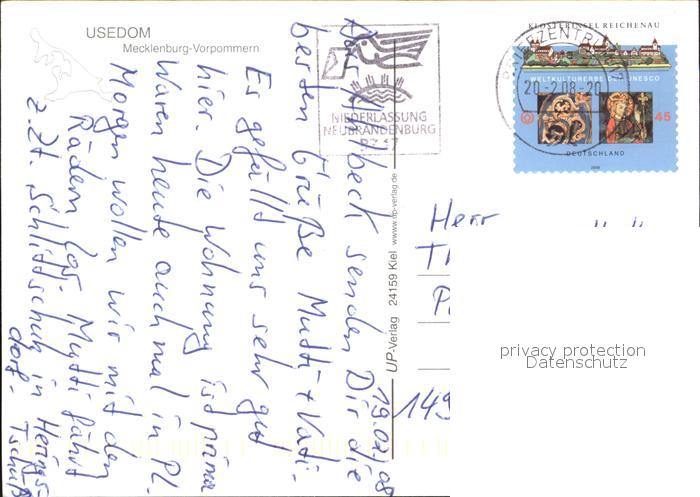 USEDOM
Mecklenburg-Vorpommern
19.02.08
Aus Ahlbeck senden Dir die
besten Grüße Mutti + Vati.
Es gefällt uns sehr gut
hier. Die Wohnung ist prima
Waren heute auch mal in Pl.
Morgen wollen wir mit den
Rädern los. Mutti fährt
z. Zt. Schlittschuh in Herings
dorf. Tschüß
UP-Verlag 24159 Kiel www.up-verlag.de
NIEDERLASSUNG
NEUBRANDENBURG
BZ 17
BRIEFZENTRUM
20-2.08-20
KLOSTERINSEL REICHENAU
WELTKULTURERBE DER UNESCO
45
DEUTSCHLAND
2008
Herr
149
privacy protection
Datenschutz